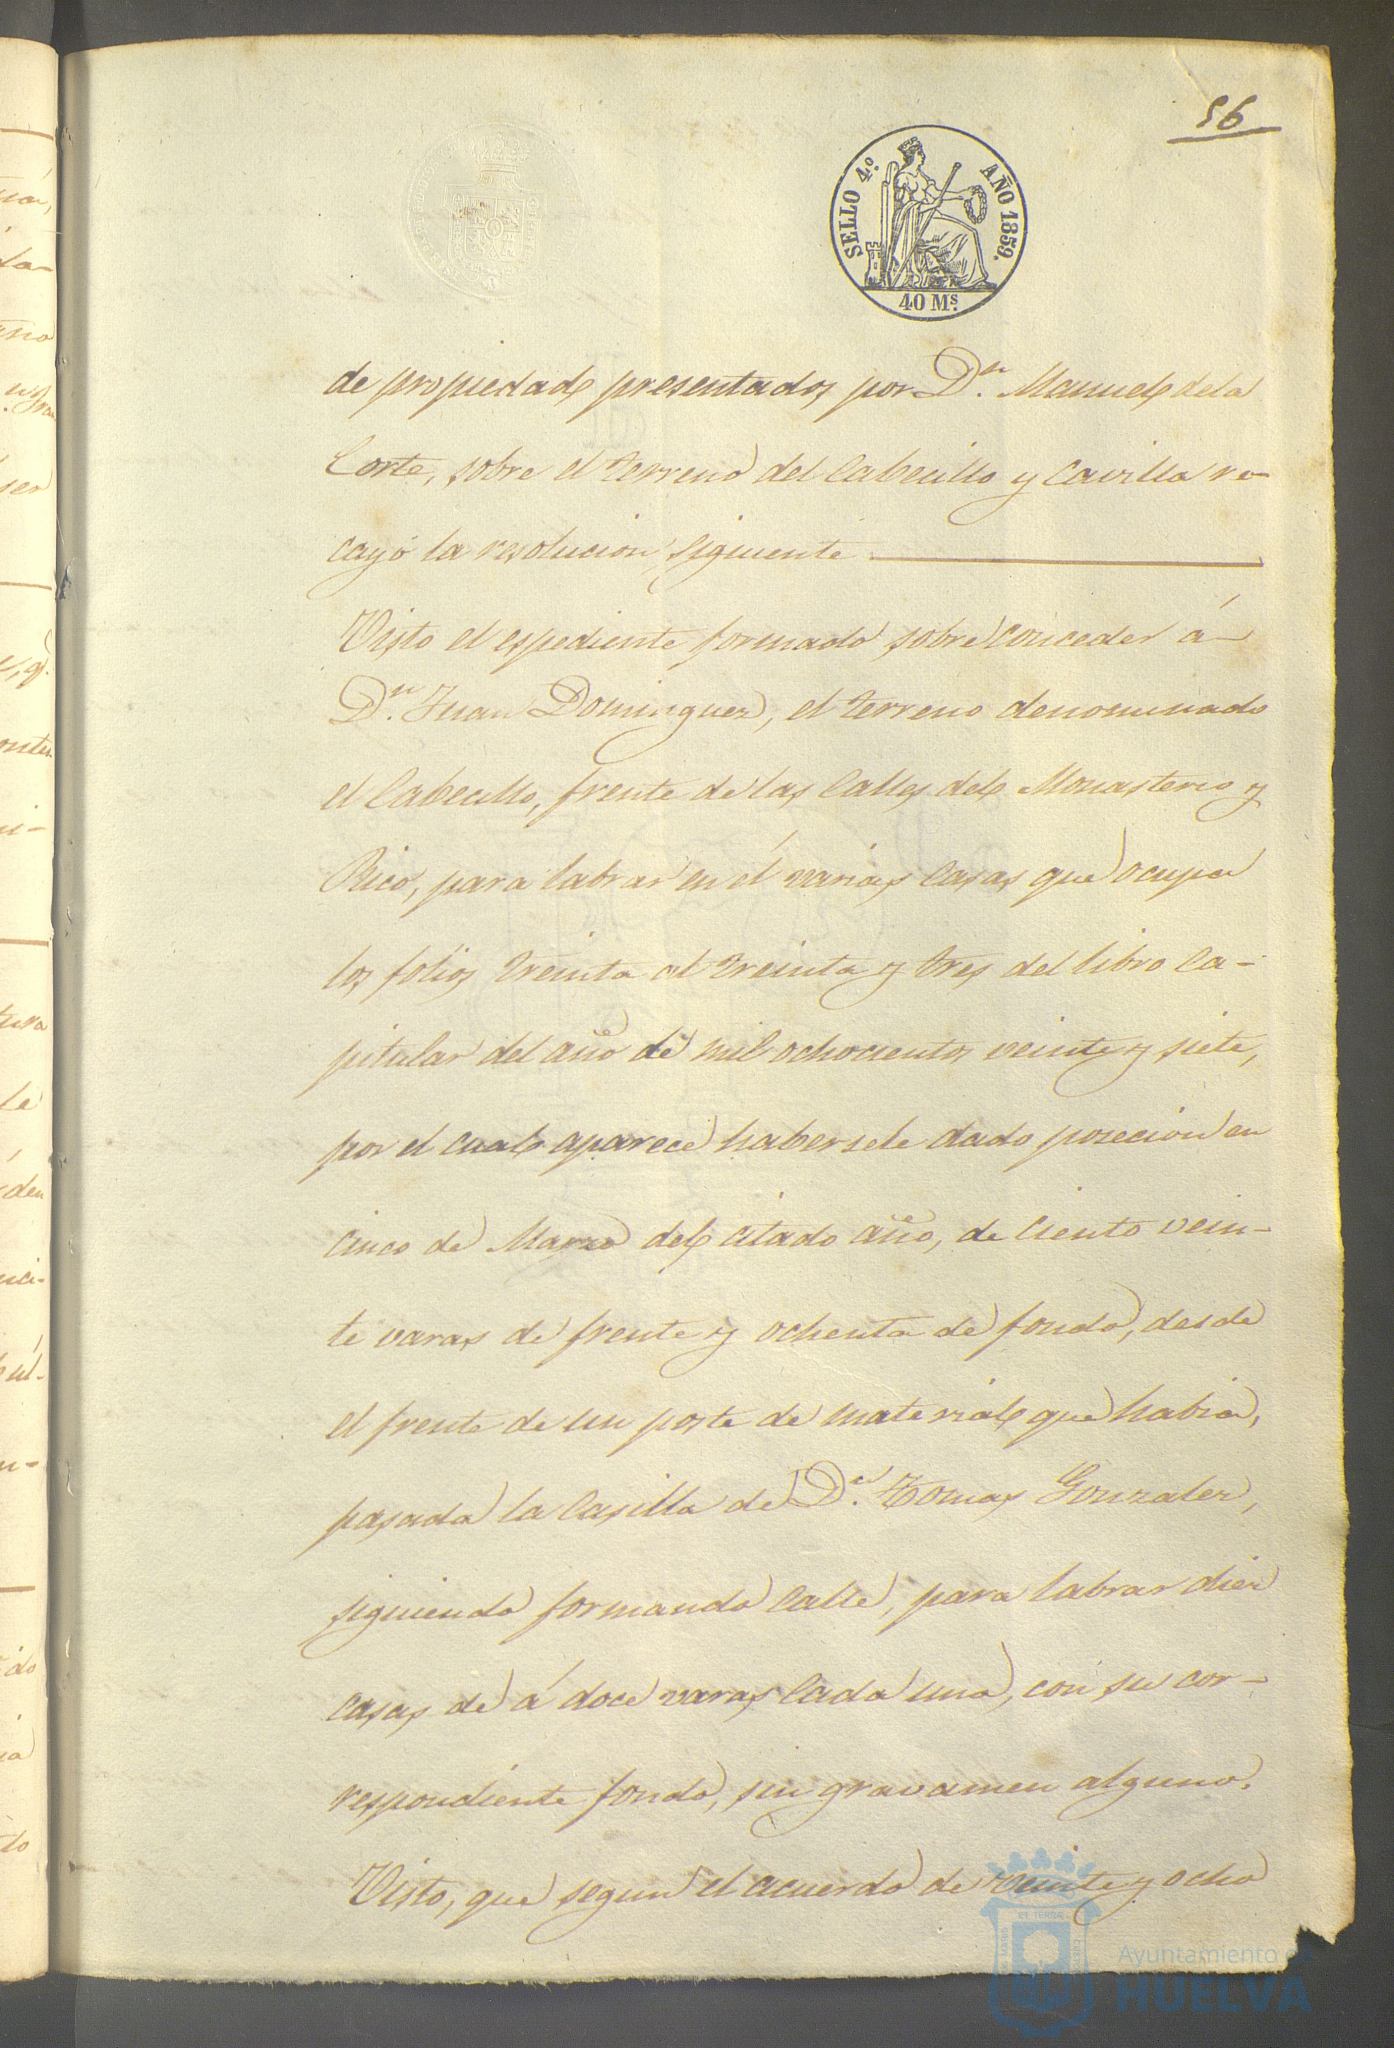 56
SELLO 4º. AÑO 1859.
40 Mˢ.
de propiedad presentados por Dⁿ. Manuel dela
Corte, sobre el terreno del Cabecillo y Cavilla re-
cayó la resolucion siguiente
Visto el espediente formado sobre conceder á
Dⁿ. Juan Dominguez, el terreno denominado
el Cabecillo, frente de las Calles del Monasterio y
Rico, para labrar en él varias Casas que ocupa
los fólios treinta al treinta y tres del libro Ca-
pitular del año de mil ochocientos veinte y siete,
por el cual aparece habersele dado posecion en
cinco de Marzo del citado año, de Ciento vein-
te varas de frente y ochenta de fondo, desde
el frente de un poste de material que habia,
pasada la Casilla de Dⁿ. Tomas Gonzalez,
siguiendo formando Calle, para labrar diez
casas de á doce varas Cada una, con su cor-
respondiente fondo, sin gravamen alguno.
Visto, que segun el acuerdo de veinte y ocho
Ayuntamiento de
HUELVA